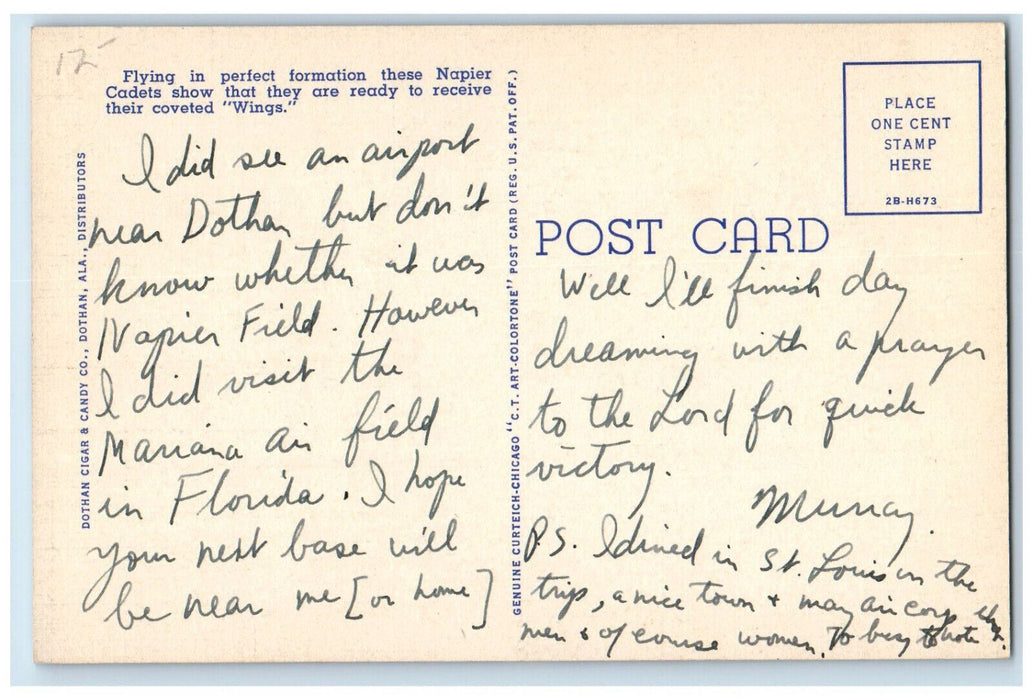 12
Flying in perfect formation these Napier
Cadets show that they are ready to receive
their coveted "Wings."
DOTHAN CIGAR & CANDY CO., DOTHAN, ALA., DISTRIBUTORS
I did see an airport
near Dothan but don't
know whether it was
Napier Field. However
I did visit the
Mariana air field
in Florida. I hope
your next base will
be near me [or home]
GENUINE CURTEICH-CHICAGO "C.T. ART-COLORTONE" POST CARD (REG. U.S. PAT. OFF.)
PLACE
ONE CENT
STAMP
HERE
2B-H673
POST CARD
Well I'll finish day
dreaming with a prayer
to the Lord for quick
victory.
Murray.
P.S. I dined in St. Louis on the
trip, a nice town + many air corp
men & of course women. To busy to